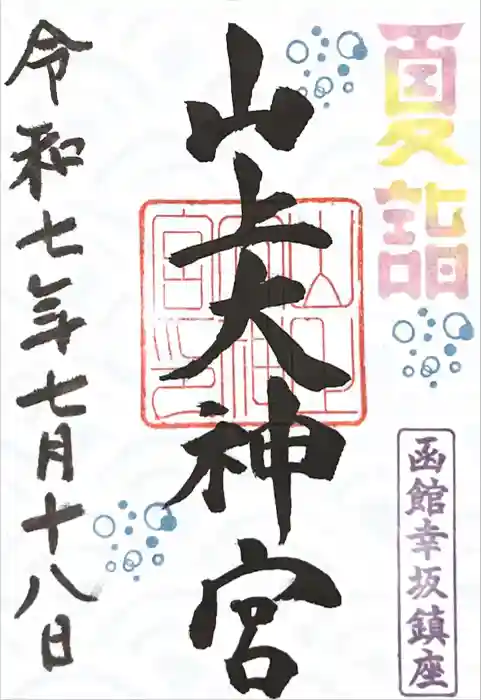 夏詣
函館幸坂鎮座
山上大神宮
令和七年七月十八日